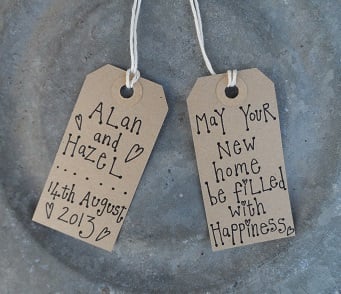 ALan
and
HaZeL
14th August
2013
May Your
New
home
be filled
with
Happiness